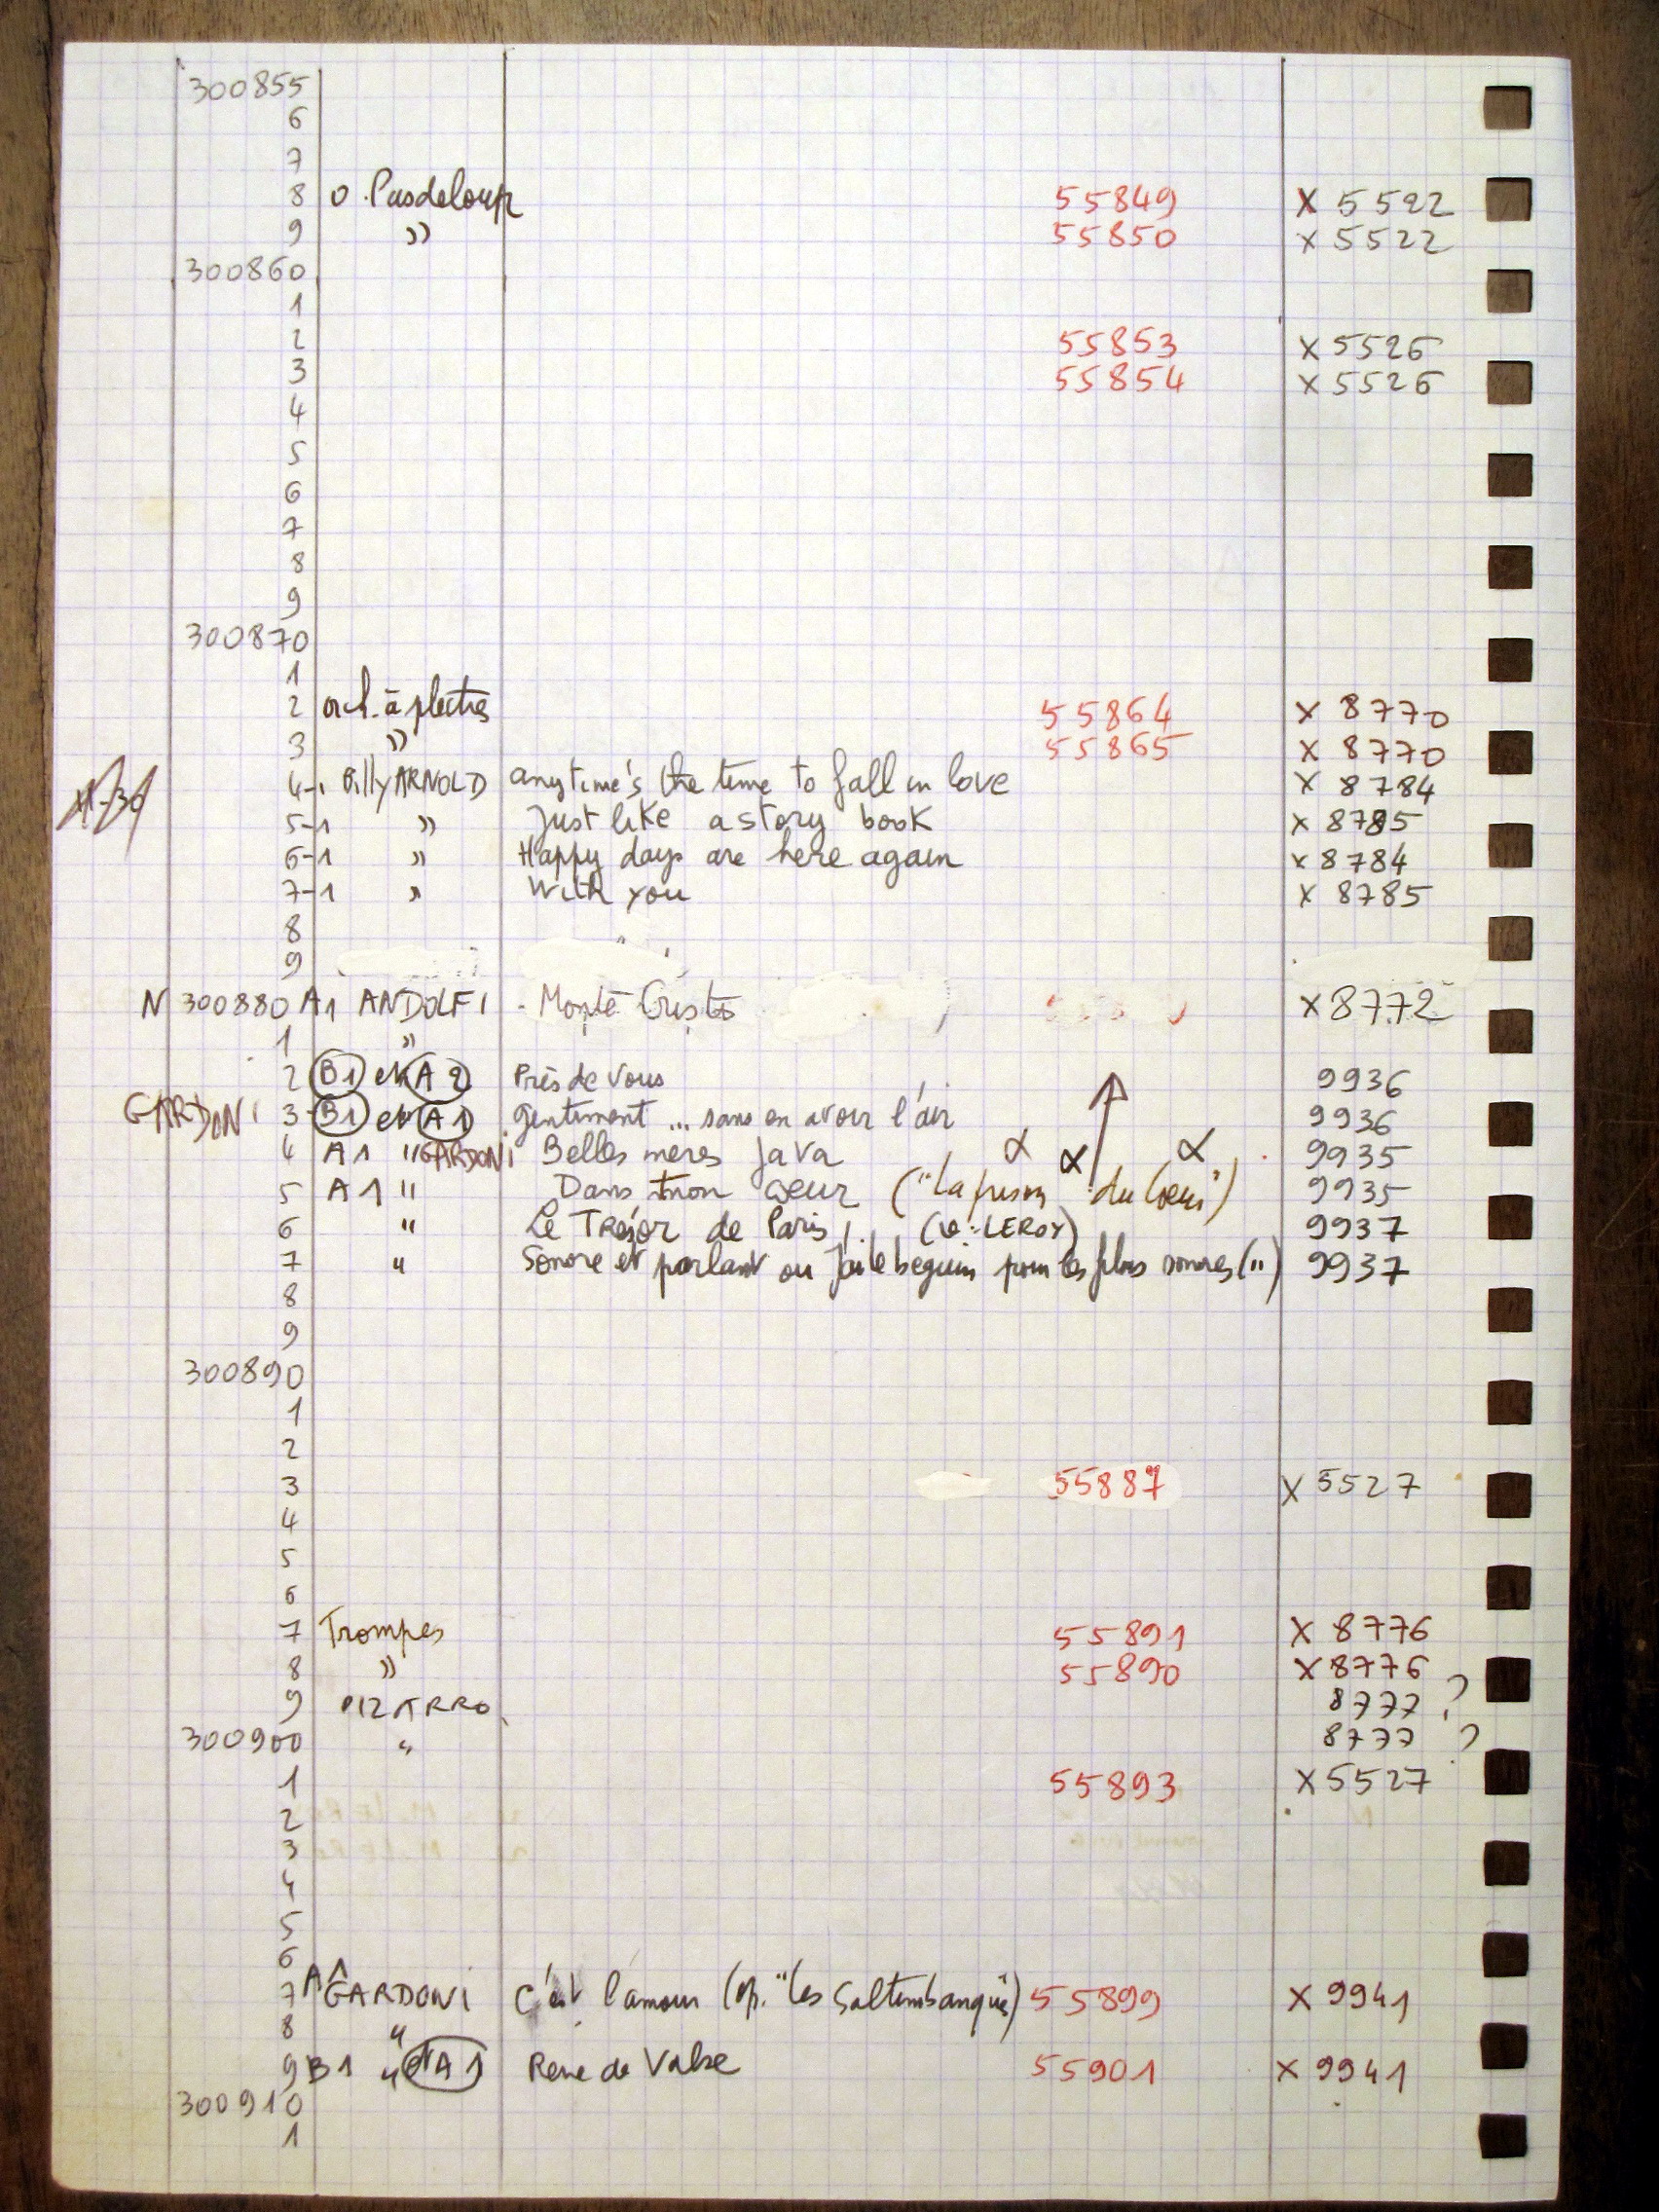 300855
6
7
8 O. Pasdeloup 55849 X 5522
9 " 55850 X 5522
300860
1
2 55853 X 5526
3 55854 X 5526
4
5
6
7
8
9
300870
1
2 orch. à plectres 55864 X 8770
3 " 55865 X 8770
4-1 Billy ARNOLD anytime's the time to fall in love X 8784
5-1 " Just like a story book X 8785
6-1 " Happy days are here again X 8784
7-1 " With you X 8785
8
9
N 300880 A1 ANDOLFI - Monte Cristo X 8772
1 "
2 B1 et A2 Près de vous 9936
GARDONI 3 B1 et A1 gentiment ... sans en avoir l'air 9936
4 A1 " GARDONI Belles mères java α α α 9935
5 A1 " Dans mon coeur ("La prison du Coeur") 9935
6 " Le Trésor de Paris (v: LEROY) 9937
7 " Sonore et parlant ou J'ai le béguin pour les films sonores (") 9937
8
9
300890
1
2
3 55887 X 5527
4
5
6
7 Trompes 55891 X 8776
8 " 55890 X 8776
9 PIZARRO 8777 ?
300900 " 8777 ?
1 55893 X 5527
2
3
4
5
6
7 A1 GARDONI C'est l'amour (op. "Les Saltimbanques") 55899 X 9941
8 "
9 B1 " et A1 Reine de Valse 55901 X 9941
300910
1